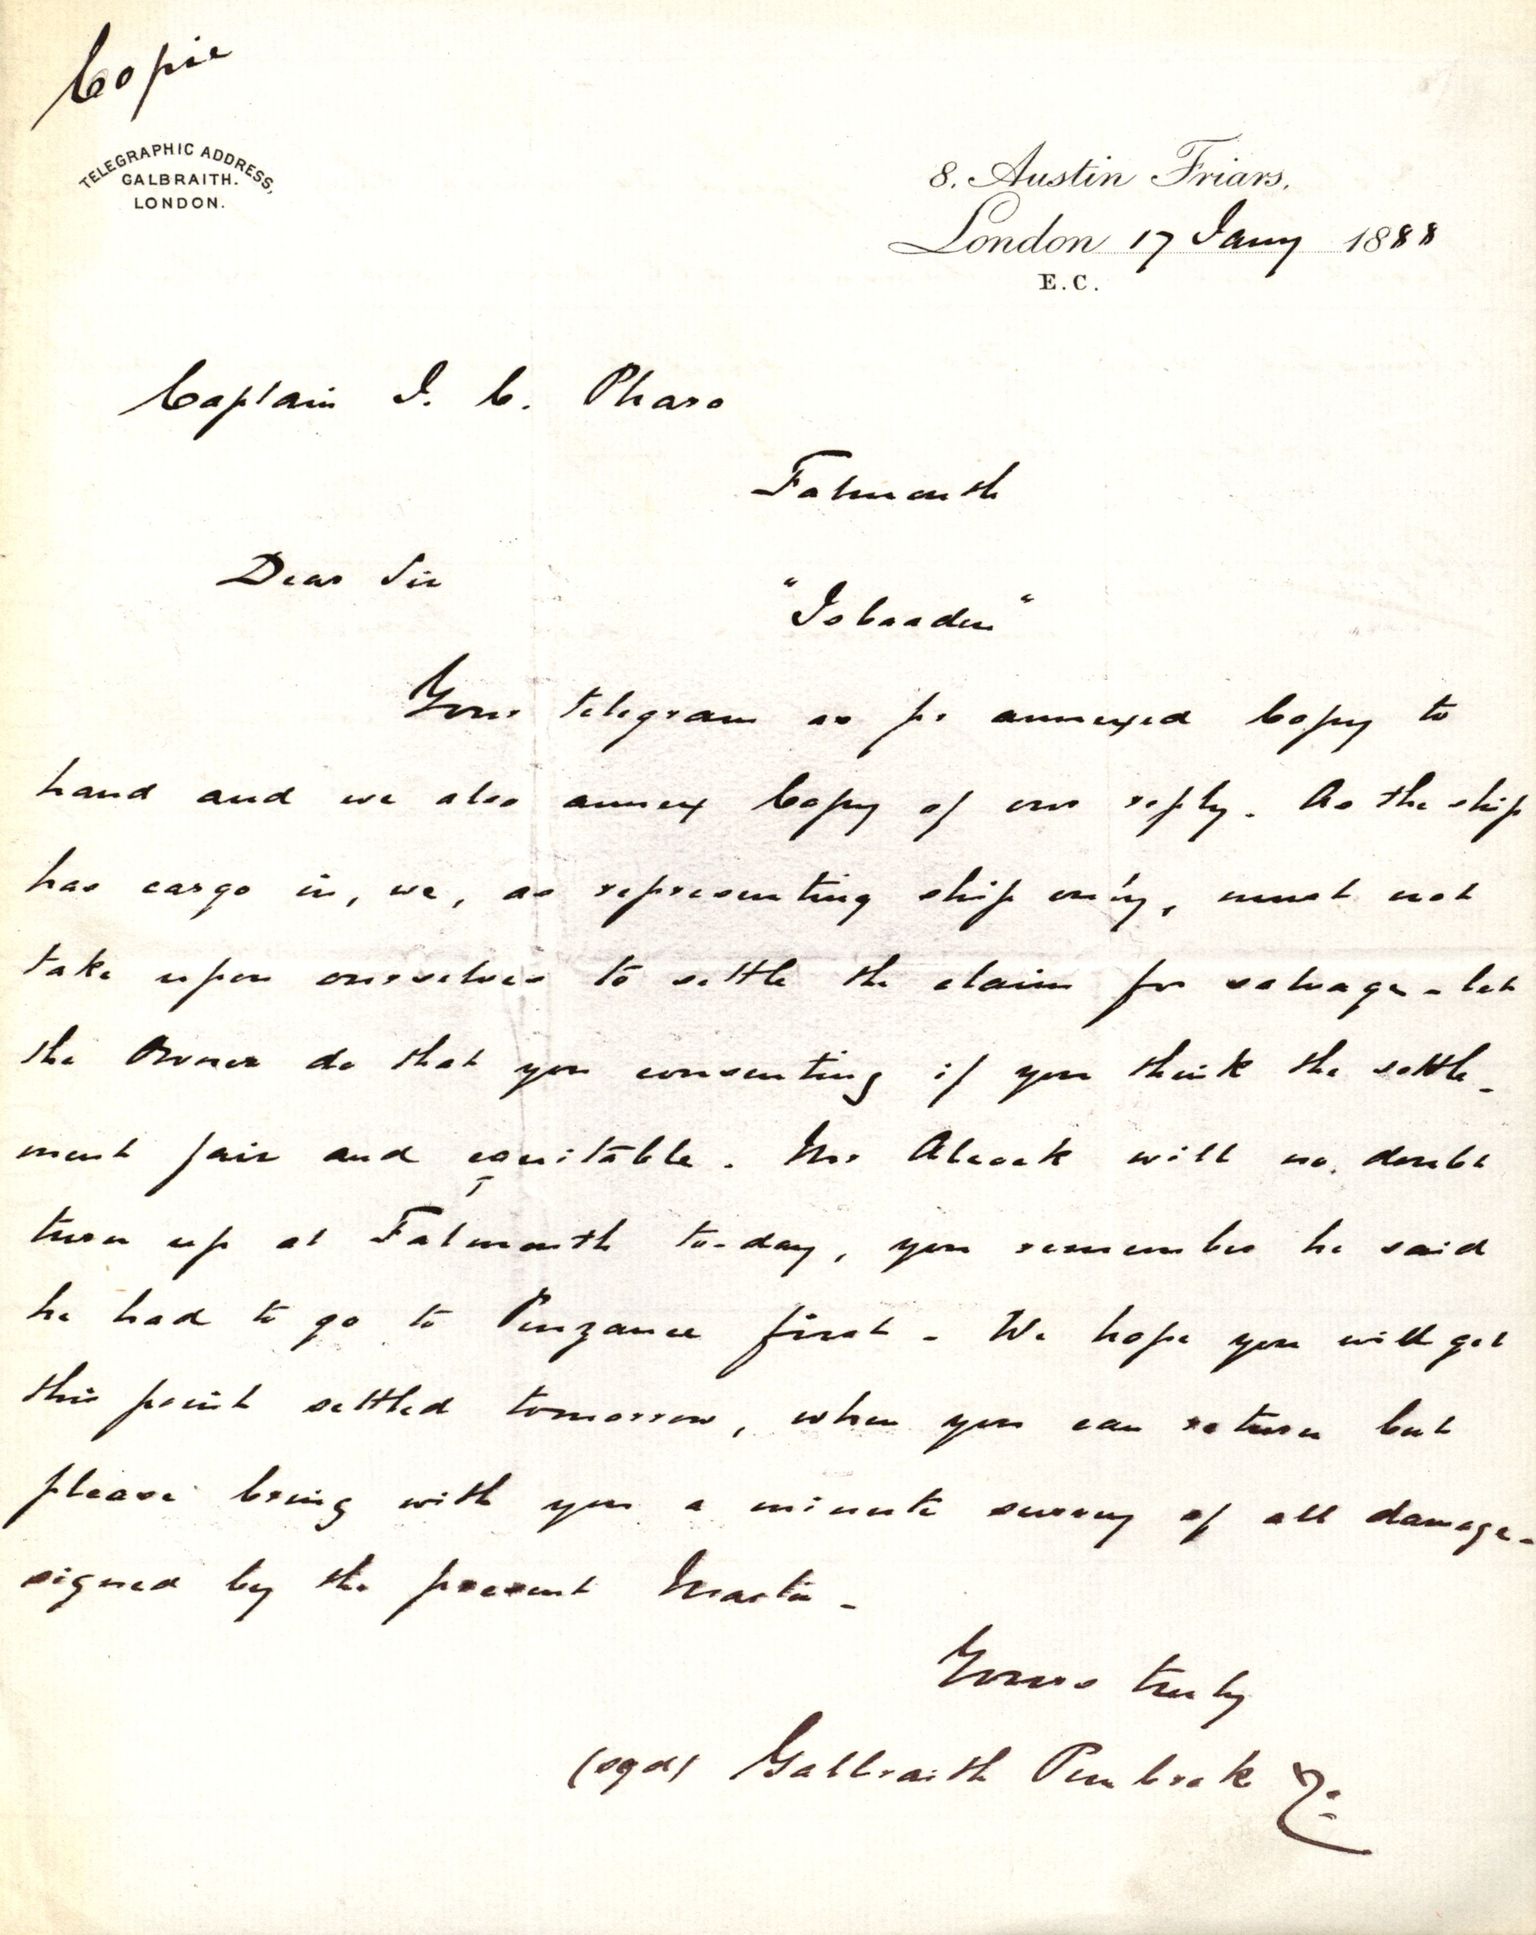 Copie
TELEGRAPHIC ADDRESS,
GALBRAITH.
LONDON.
8, Austin Friars,
London 17 Jany 1888
E.C.
Captain J. C. Pharo
Falmouth
Dear Sir
"Isbaaden"
Your telegram as pr annexed Copy to
hand and we also annex Copy of our reply. As the ship
has cargo in, we, as representing ship only, must not
take upon ourselves to settle the claim for salvage - let
the Owner do that you consenting if you think the settle-
ment fair and equitable. Mr Alcock will no doubt
turn up at Falmouth to-day, you remember he said
he had to go to Penzance first - We hope you will get
this point settled tomorrow, when you can return but
please bring with you a minute survey of all damage -
signed by the present Master -
Yours truly
(sgd) Galbraith Pembrok & Co